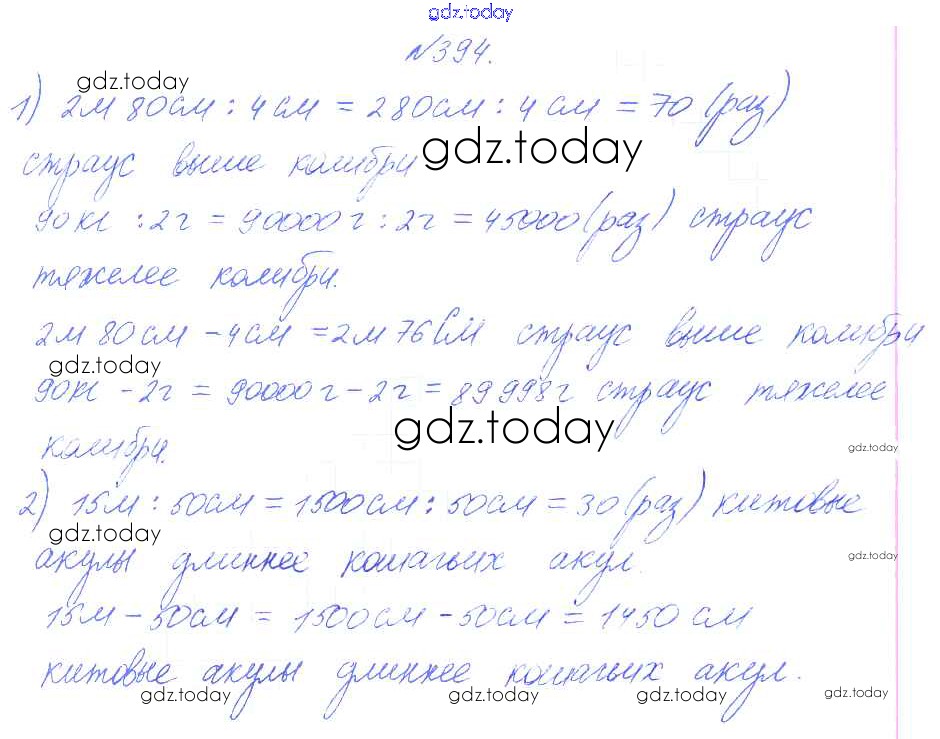 gdz.today
№394.
gdz.today
1) 2м 80см : 4см = 280см : 4см = 70 (раз)
страус выше колибри gdz.today
90кг : 2г = 90000г : 2г = 45000(раз) страус
тяжелее колибри.
2м 80см - 4см = 2м 76см страус выше колибри
gdz.today
90кг - 2г = 90000г - 2г = 89998г страус тяжелее
gdz.today
колибри. gdz.today
2) 15м : 50см = 1500см : 50см = 30(раз) китовые
gdz.today
акулы длиннее кошачьих акул. gdz.today
15м - 50см = 1500см - 50см = 1450 см
китовые акулы длиннее кошачьих акул.
gdz.today gdz.today gdz.today gdz.today